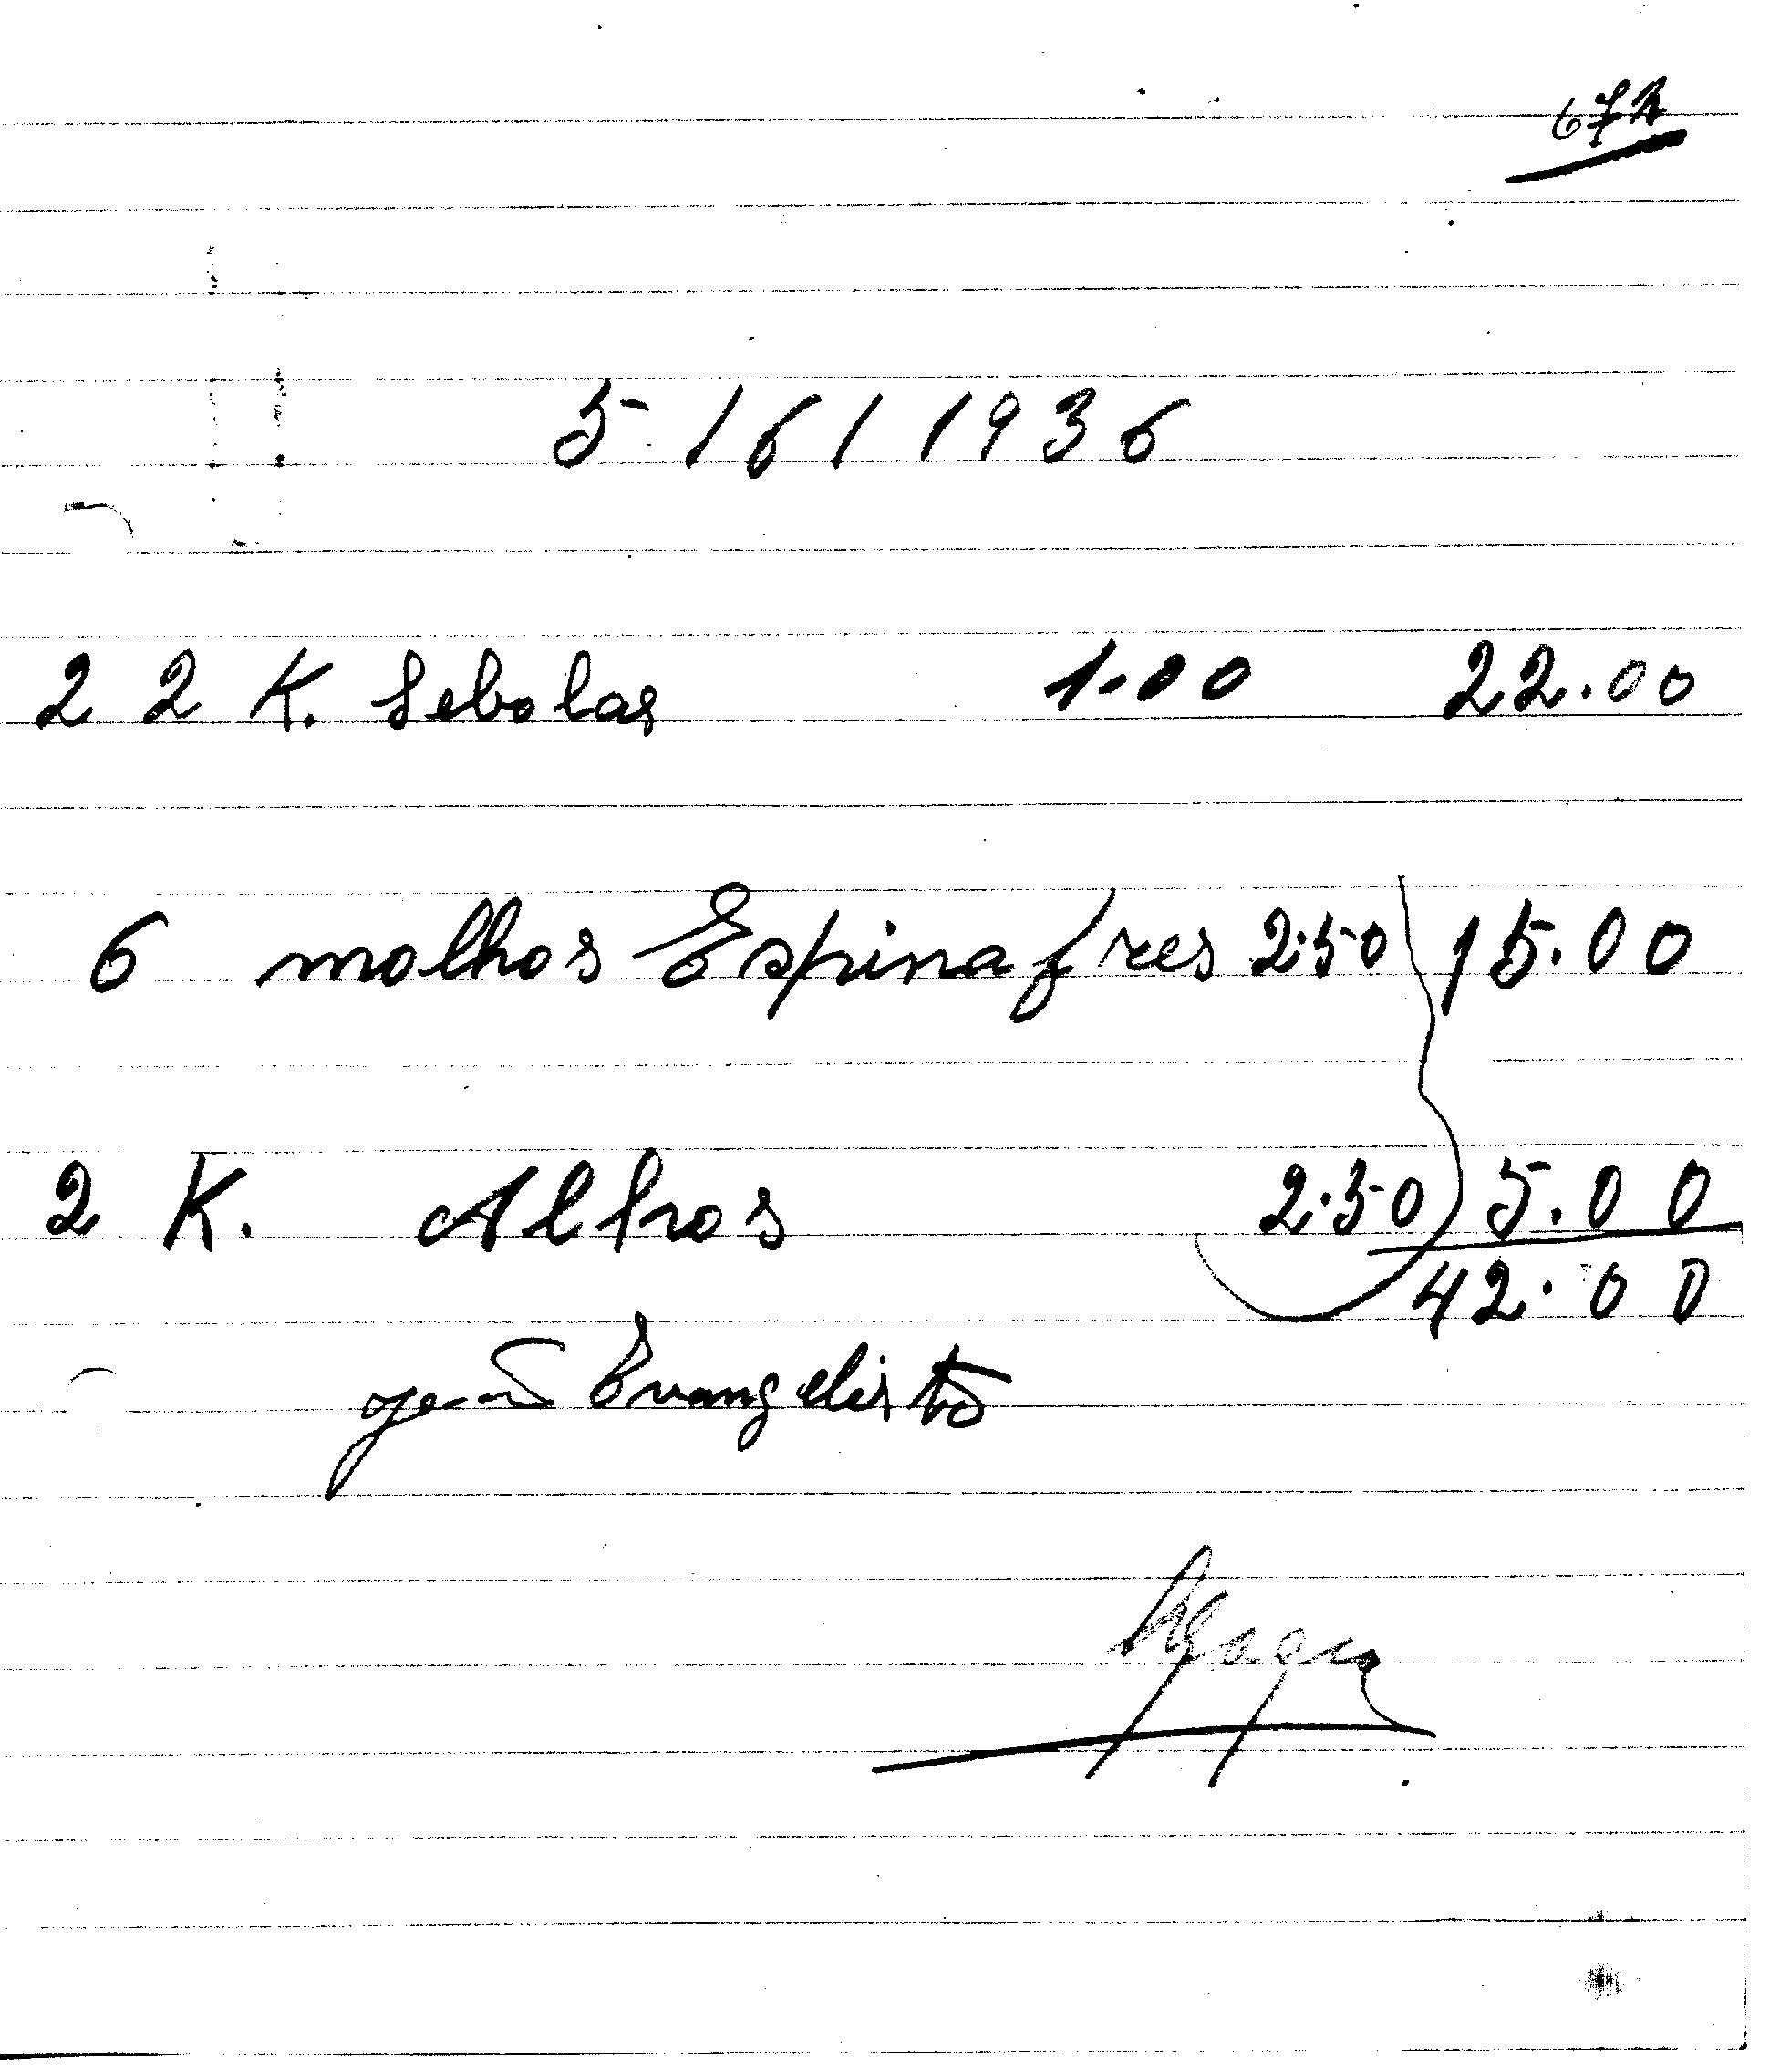 672
5/6/1936
22 K. Sebolas 1.00 22.00
6 molhos Espinafres 2.50 15.00
2 K. Alhos 2.50 5.00
42.00
Evangelista